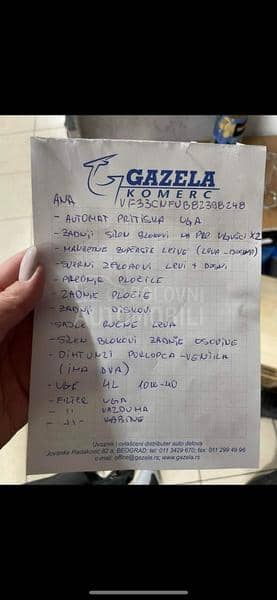 GAZELA
KOMERC
ANA VF33CNFUB82398248
- AUTOMAT PRITISKA UGA
- ZADNJI SILEN BLOKOVI NA PRE X2
- MAKRETNE LEVE
- LEVI + DESNI
- PREDNJE PLOČICE
- ZADNJE PLOČICE
- ZADNJI DISKOVI
- SAJLE RUČNE LEVA
- SILEN BLOKOVI ZADNJE OSOVINE
- DIHTUNZI POKLOPCA - VENTILA
(IMA DVA)
- UGE 4L 10W-40
- FILTER UGA
- " VAZDUHA
- -,,- KABINE
Uvoznik i ovlašćeni distributer auto delova
Jovanke Radaković 82 a, BEOGRAD; tel: 011 3429 670; fax: 011 299 49 96
e-mail: office@gazela.rs; www.gazela.rs